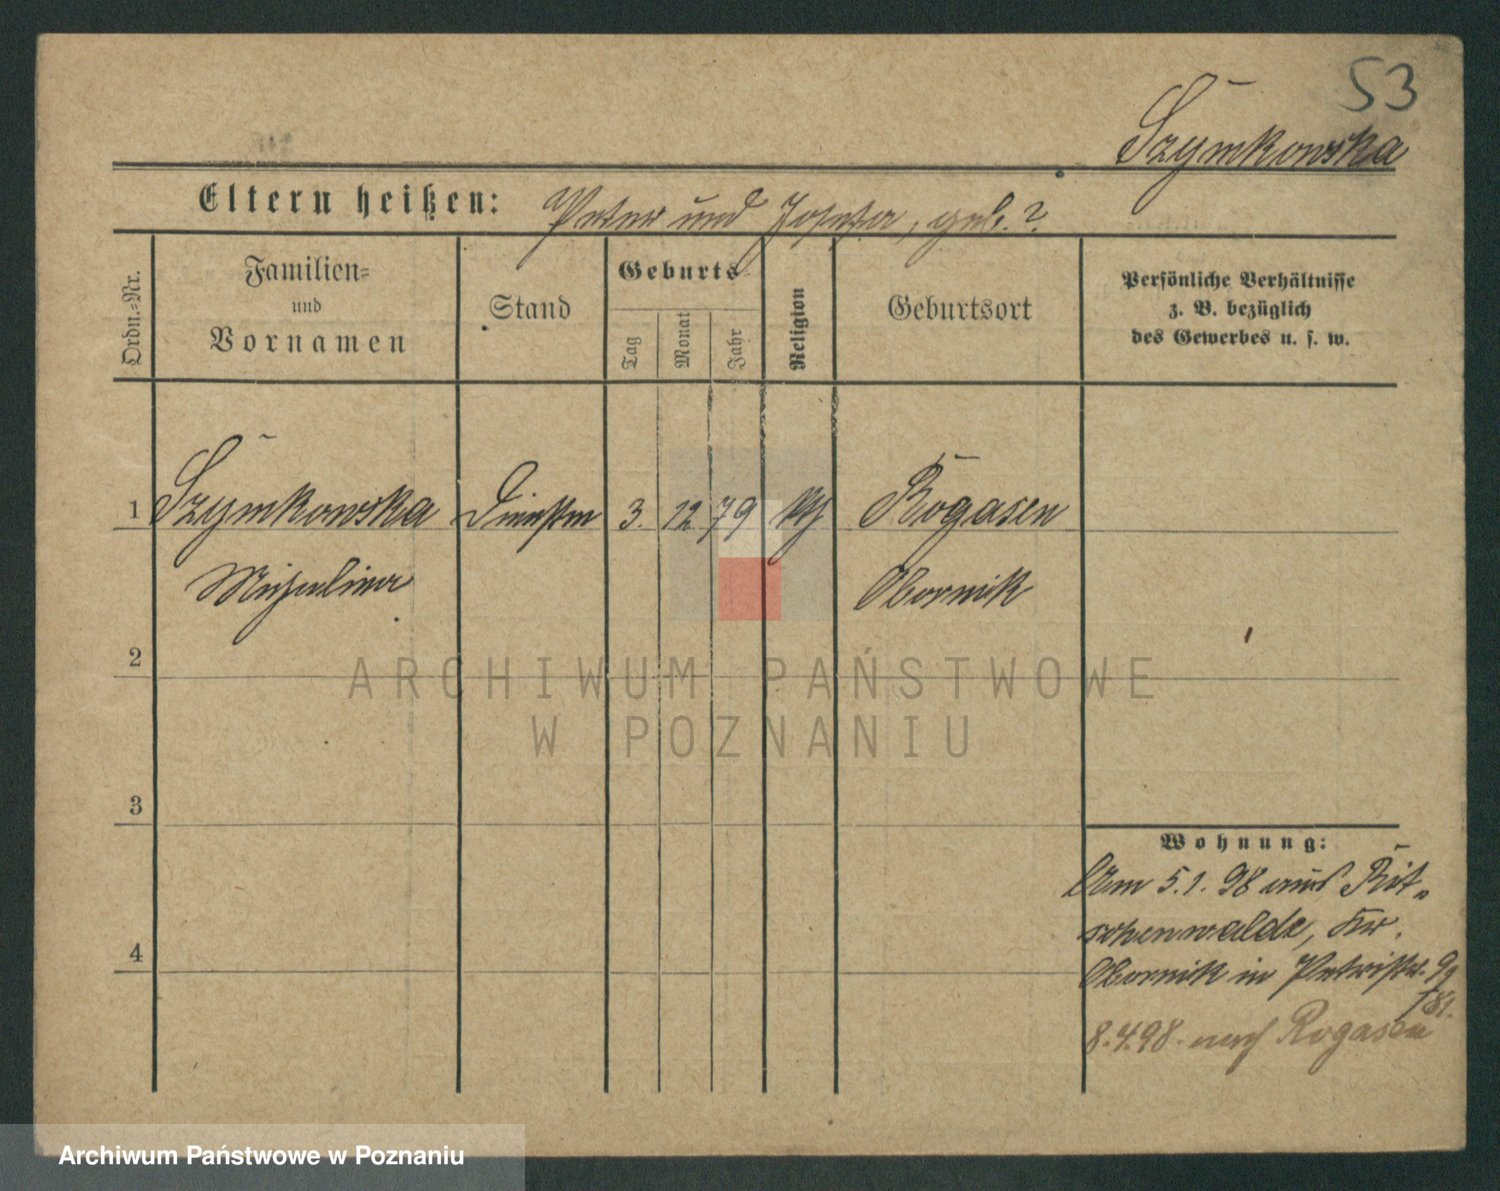 53
Szymkowska
Eltern heißen: Peter und Josefa, geb. ?
Ordn.=Nr.
Familien=
und
Vornamen
Stand
Geburts
Tag
Monat
Jahr
Religion
Geburtsort
Persönliche Verhältnisse
z. B. bezüglich
des Gewerbes u. s. w.
1 Szymkowska 3. 12 79 Rogasen
Obornik
2
ARCHIWUM PAŃSTWOWE
W POZNANIU
3
4
Wohnung:
Am 5.1.98 aus Rit-
schenwalde, Kr.
Obornik in Petristr. 9
8.4.98. nach Rogasen
Archiwum Państwowe w Poznaniu